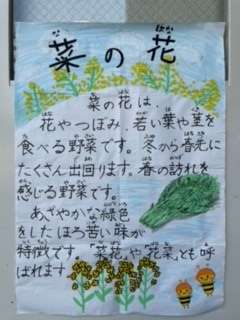 菜の花
菜の花は、
花やつぼみ、若い葉や茎を
食べる野菜です。冬から春先に
たくさん出回ります。春の訪れを
感じる野菜です。
あざやかな緑色
をした ほろ苦い味が
特徴です。「菜花」や「花菜」とも呼
ばれます。